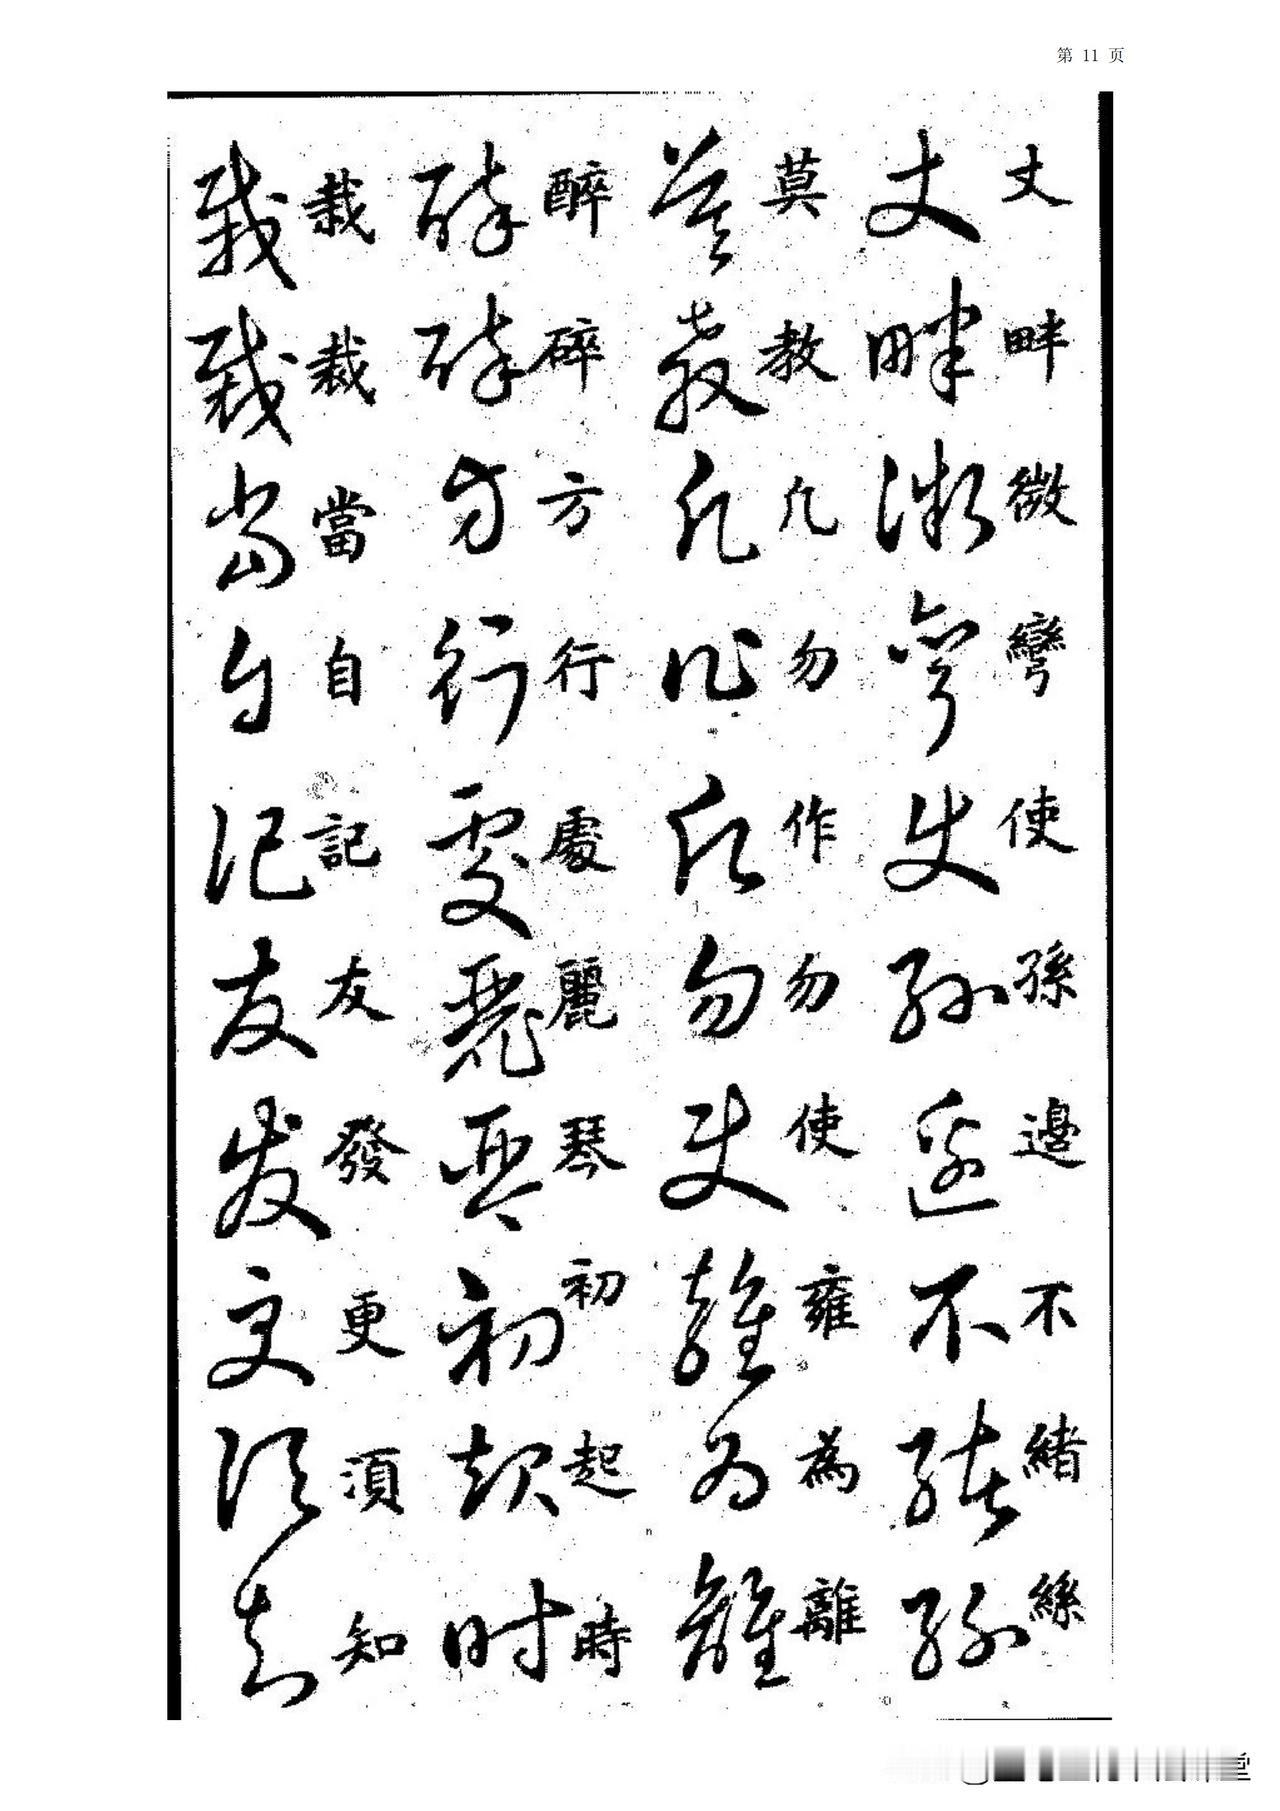 第 11 页
丈畔微彎使孫邊不緒絲
莫教凡勿作勿使雍為離
醉碎方行處麗琴初起時
栽裁當自記友發更須知
堂